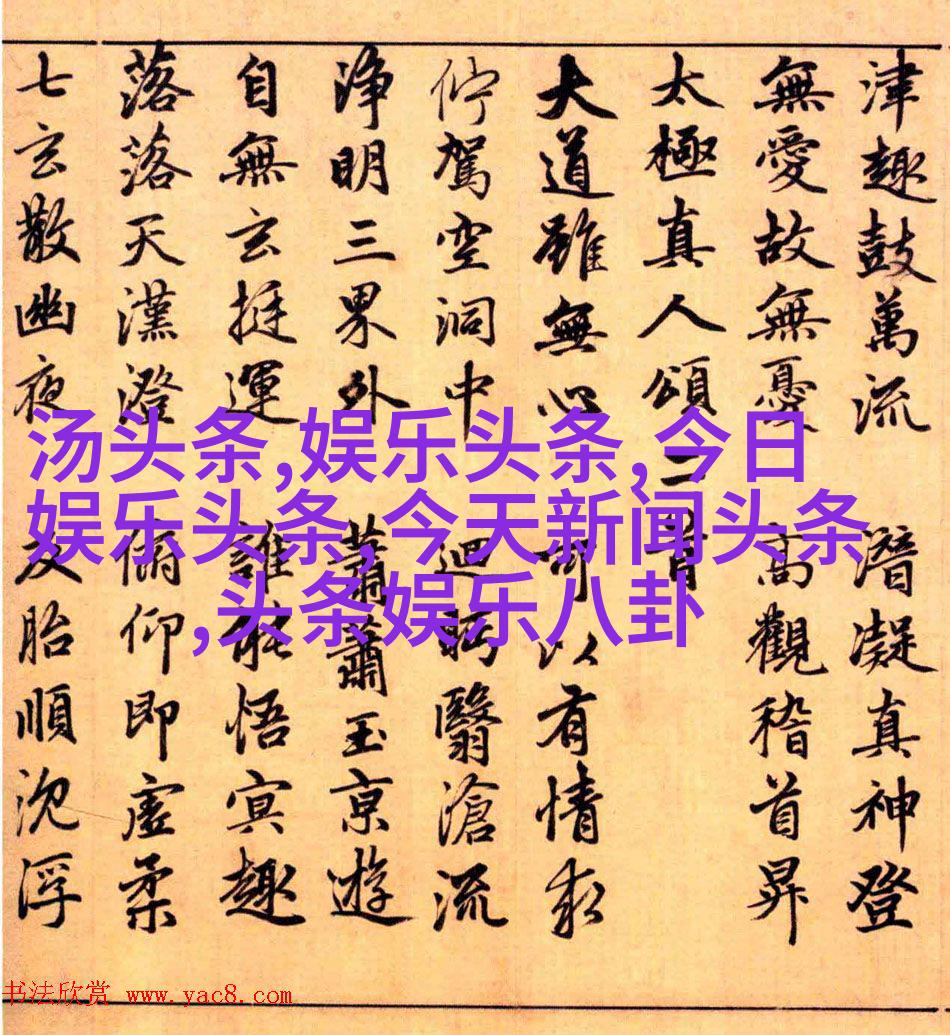 津趣鼓萬流 潛凝真神登
無愛故無憂 高觀稽首昇
太極真人頌二首
大道雖無心 可以有情求
佇駕空洞中 迴眄翳滄流
淨明三界外 蕭蕭玉京遊
自無玄挺運 誰能悟冥趣
落落天漢澄 俯仰即虛柔
七玄散幽夜 反胎順沈浮
汤头条,娱乐头条,今日
娱乐头条,今天新闻头条
,头条娱乐八卦
书法欣赏 www.yac8.com